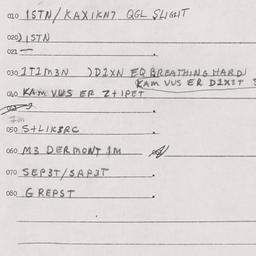 010 1STN/KAX1KN7 QGL SLIGHT
020) 1STN
021 —
030 1T1M3N )D1XN EQ BREATHING HARD)
KAM VUS ER D1X3T
040 KAM VUS ER Z+1PET
050 S+LIK3RC
060 M3 DERMONT 1M
070 SEP3T/SAP3T
080 GREPST